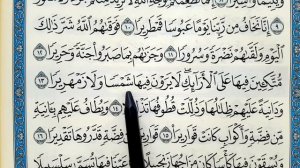 ٩ إِنَّا نَخَافُ مِن رَّبِّنَا يَوْمًا عَبُوسًا قَمْطَرِيرًا ١٠ فَوَقَىٰهُمُ ٱللَّهُ شَرَّ ذَٰلِكَ
ٱلْيَوْمِ وَلَقَّىٰهُمْ نَضْرَةً وَسُرُورًا ١١ وَجَزَىٰهُم بِمَا صَبَرُوا۟ جَنَّةً وَحَرِيرًا ١٢
مُّتَّكِـِٔينَ فِيهَا عَلَى ٱلْأَرَآئِكِ لَا يَرَوْنَ فِيهَا شَمْسًا وَلَا زَمْهَرِيرًا ١٣
وَدَانِيَةً عَلَيْهِمْ ظِلَٰلُهَا وَذُلِّلَتْ قُطُوفُهَا ١٤ وَيُطَافُ عَلَيْهِم بِـَٔانِيَةٍ
مِّن فِضَّةٍ وَأَكْوَابٍ كَانَتْ قَوَارِيرَا۠ ١٥ قَوَارِيرَا۟ مِن فِضَّةٍ قَدَّرُوهَا تَقْدِيرًا ١٦